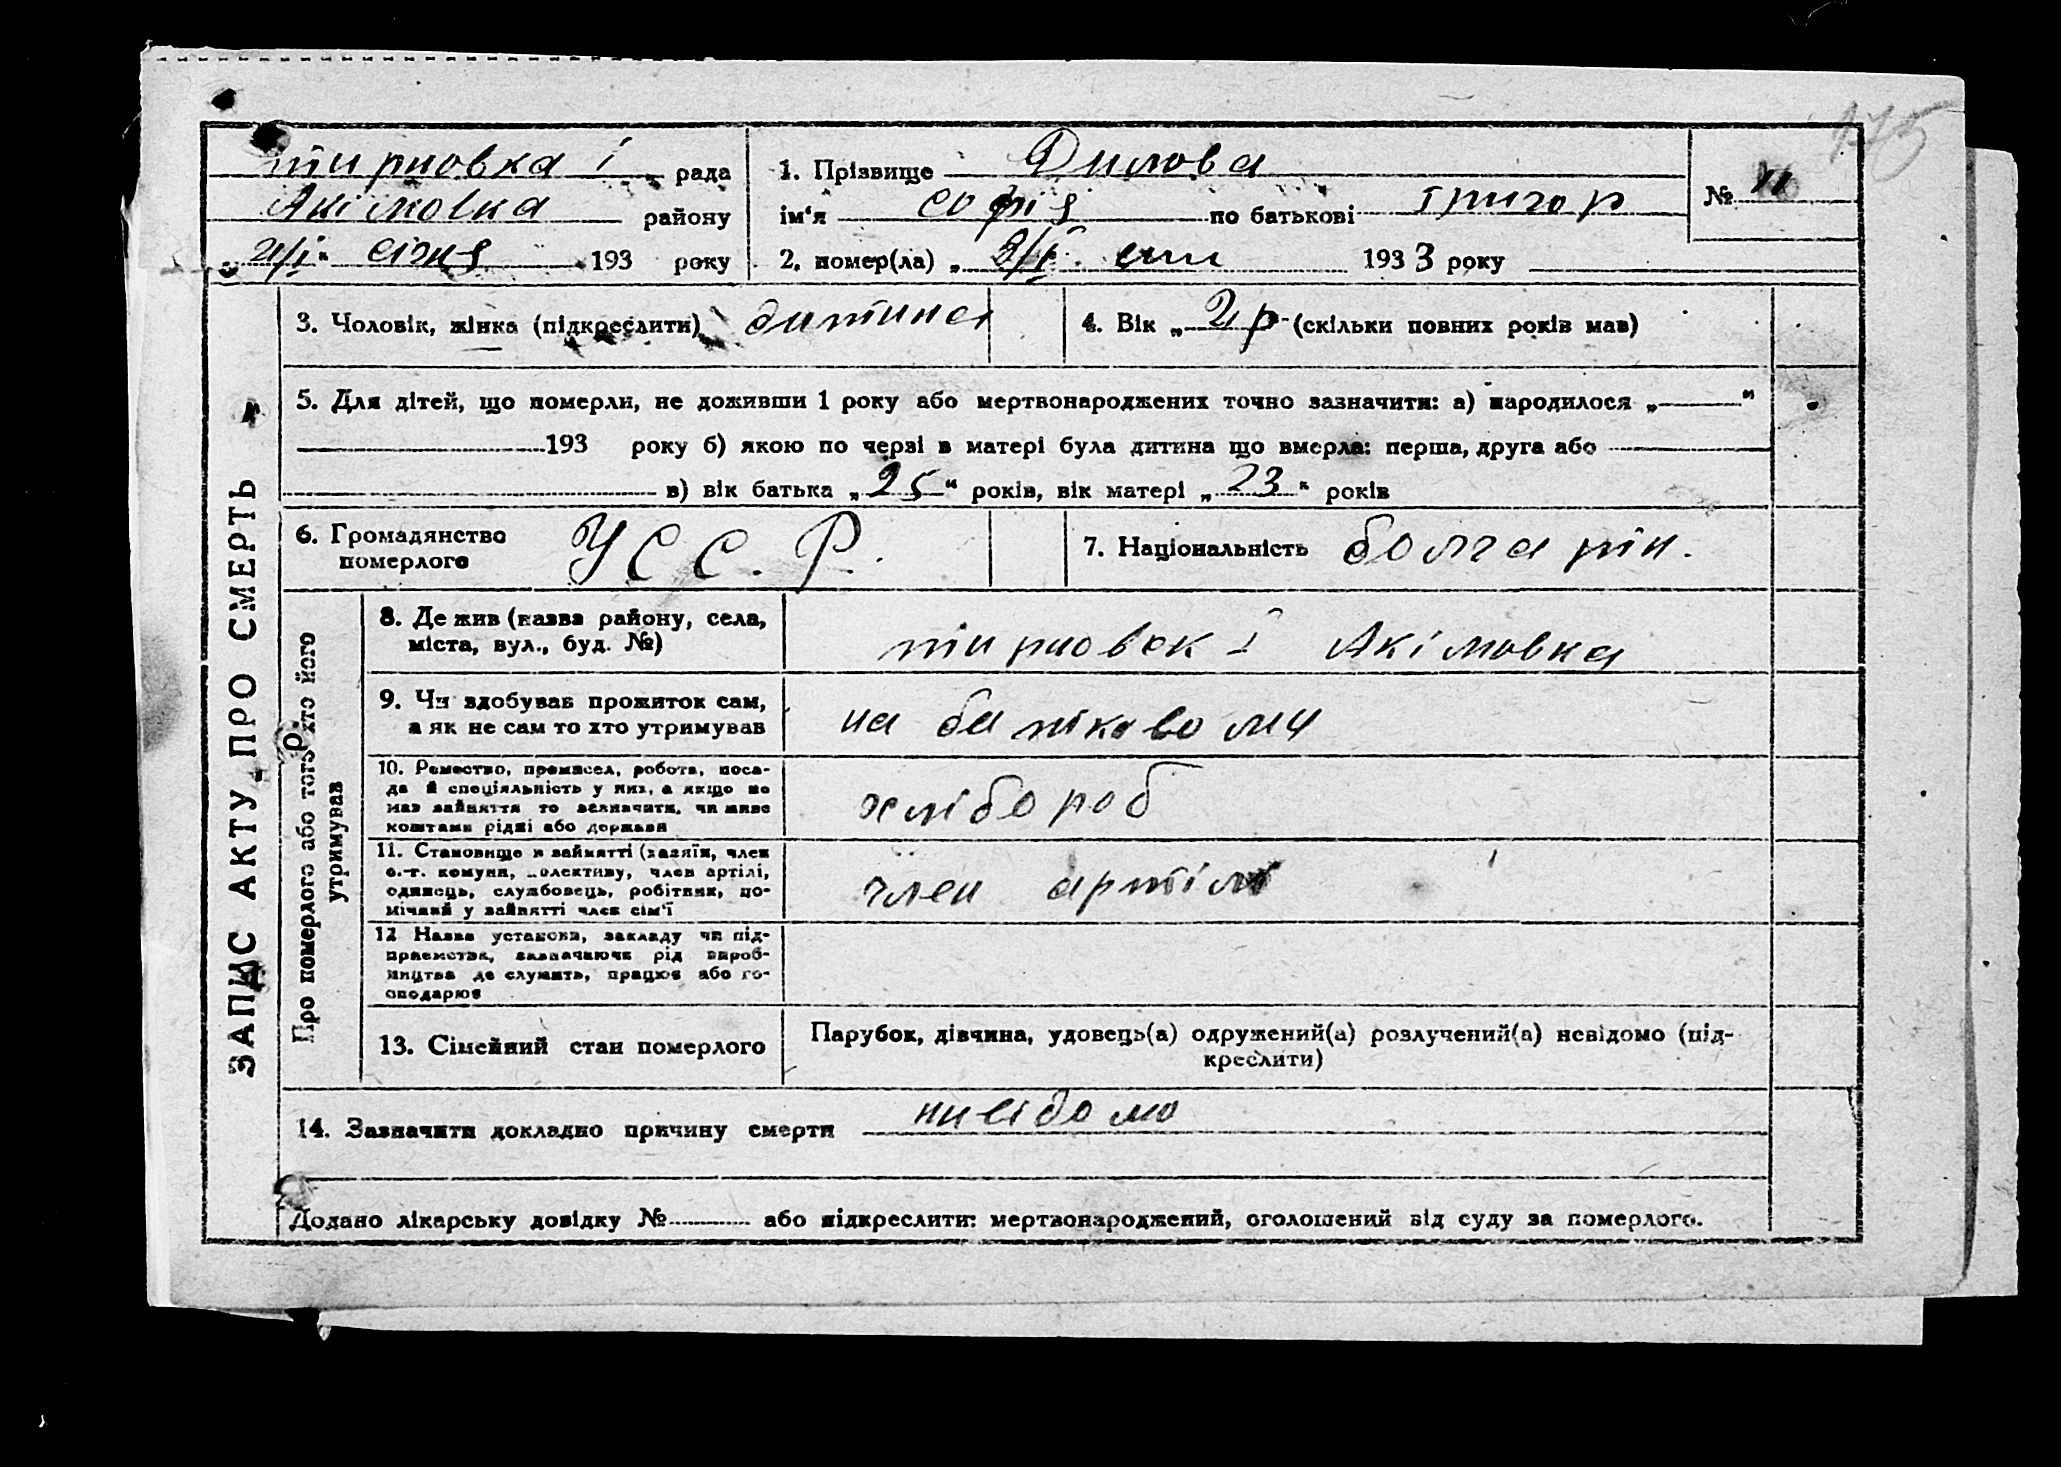 175
тирновка І рада
Акімовка району
"21/І" січня 193 року
1. Прізвище Димова
ім'я софія по батькові григор
2. помер(ла) " /І. 1933 року
№ 11
ЗАПИС АКТУ ПРО СМЕРТЬ
3. Чоловік, жінка (підкреслити) дитина
4. Вік „2 р" (скільки повних років мав)
5. Для дітей, що померли, не доживши 1 року або мертвонароджених точно зазначити: а) народилося „ "
193 року б) якою по черзі в матері була дитина що вмерла: перша, друга або
в) вік батька „25" років, вік матері „23" років
6. Громадянство
померлого
УССР.
7. Національність болгарін.
Про померлого або того хто його
утримував
8. Де жив (назва району, села,
міста, вул., буд. №)
тирновк І Акімовка
9. Чи здобував прожиток сам,
а як не сам то хто утримував
на батіковому
10. Ремество, промисел, робота, поса-
да й спеціяльність у них, а якщо не
мав зайняття то зазначити, чи живе
коштами рідні або держави
хлібороб
11. Становище в зайнятті (хазяїн, член
с.-г. комуни, колективу, член артілі,
одинець, службовець, робітник, по-
мічний у зайнятті член сім'ї
член артілі
12 Назва установи, закладу чи під-
приємства, зазначаючи рід вироб-
ництва де служить, працює або го-
сподарює
13. Сімейний стан померлого
Парубок, дівчина, удовець(а) одружений(а) розлучений(а) невідомо (під-
креслити)
14. Зазначити докладно причину смерти нивідомо
Додано лікарську довідку № або підкреслити: мертвонароджений, оголошений від суду за померлого.